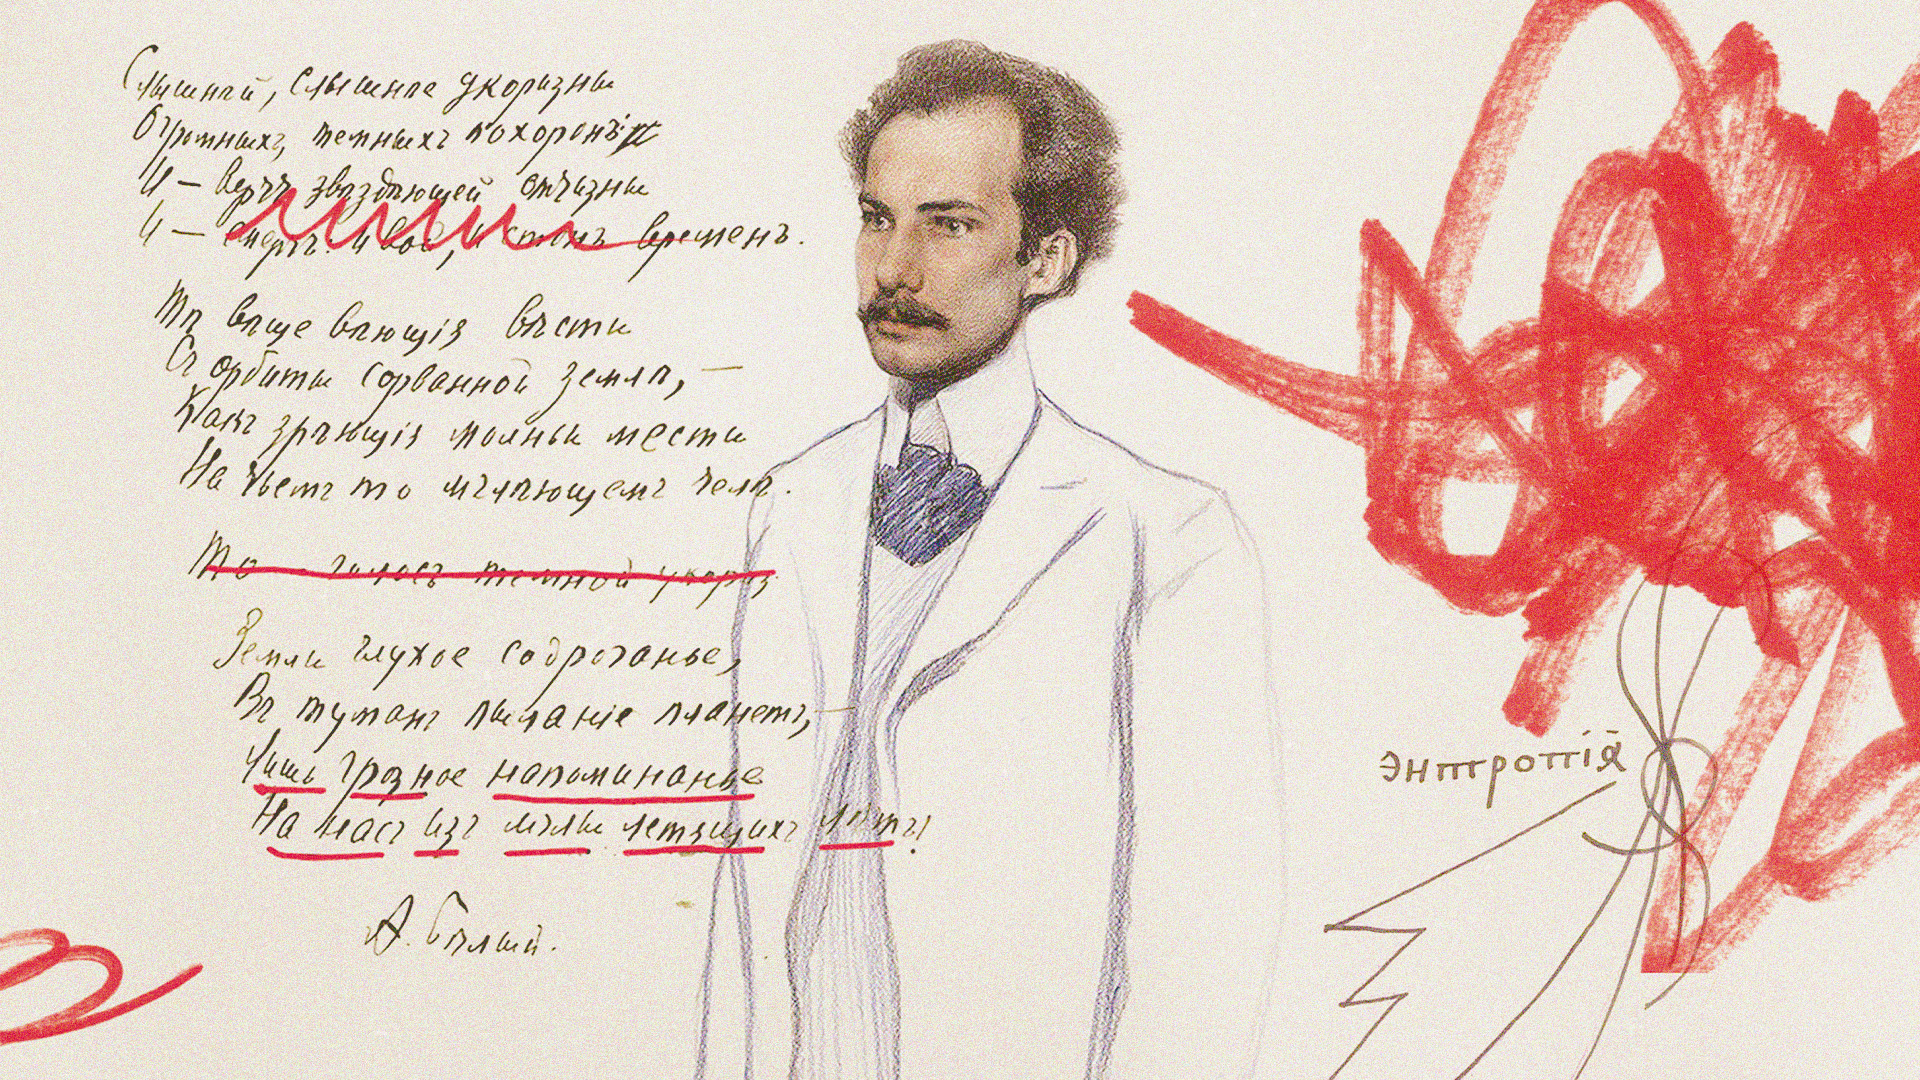 Слышнѣй, слышнее укоризны
Огромныхъ, темныхъ похоронъ:
И — звѣздѣющей отчизны
И — смерчъ: и вой, и стонъ временъ.
Тѣ вѣще вѣющія вѣсти
Съ орбиты сорванной землѣ, —
Какъ зрѣющія молньи мести
На чьемъ то мглѣющемъ челѣ.
То — голосъ темной укориз
Земли глухое содроганье,
Въ туманъ пыланіе планетъ, —
Лишь грозное напоминанье
На насъ изъ мглы летящихъ лѣтъ!
А. Бѣлый.
энтропія